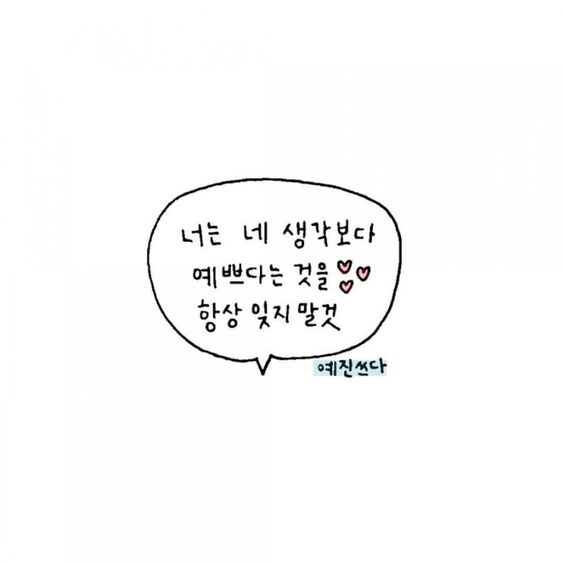 너는 네 생각보다
예쁘다는 것을
항상 잊지 말것
예진쓰다